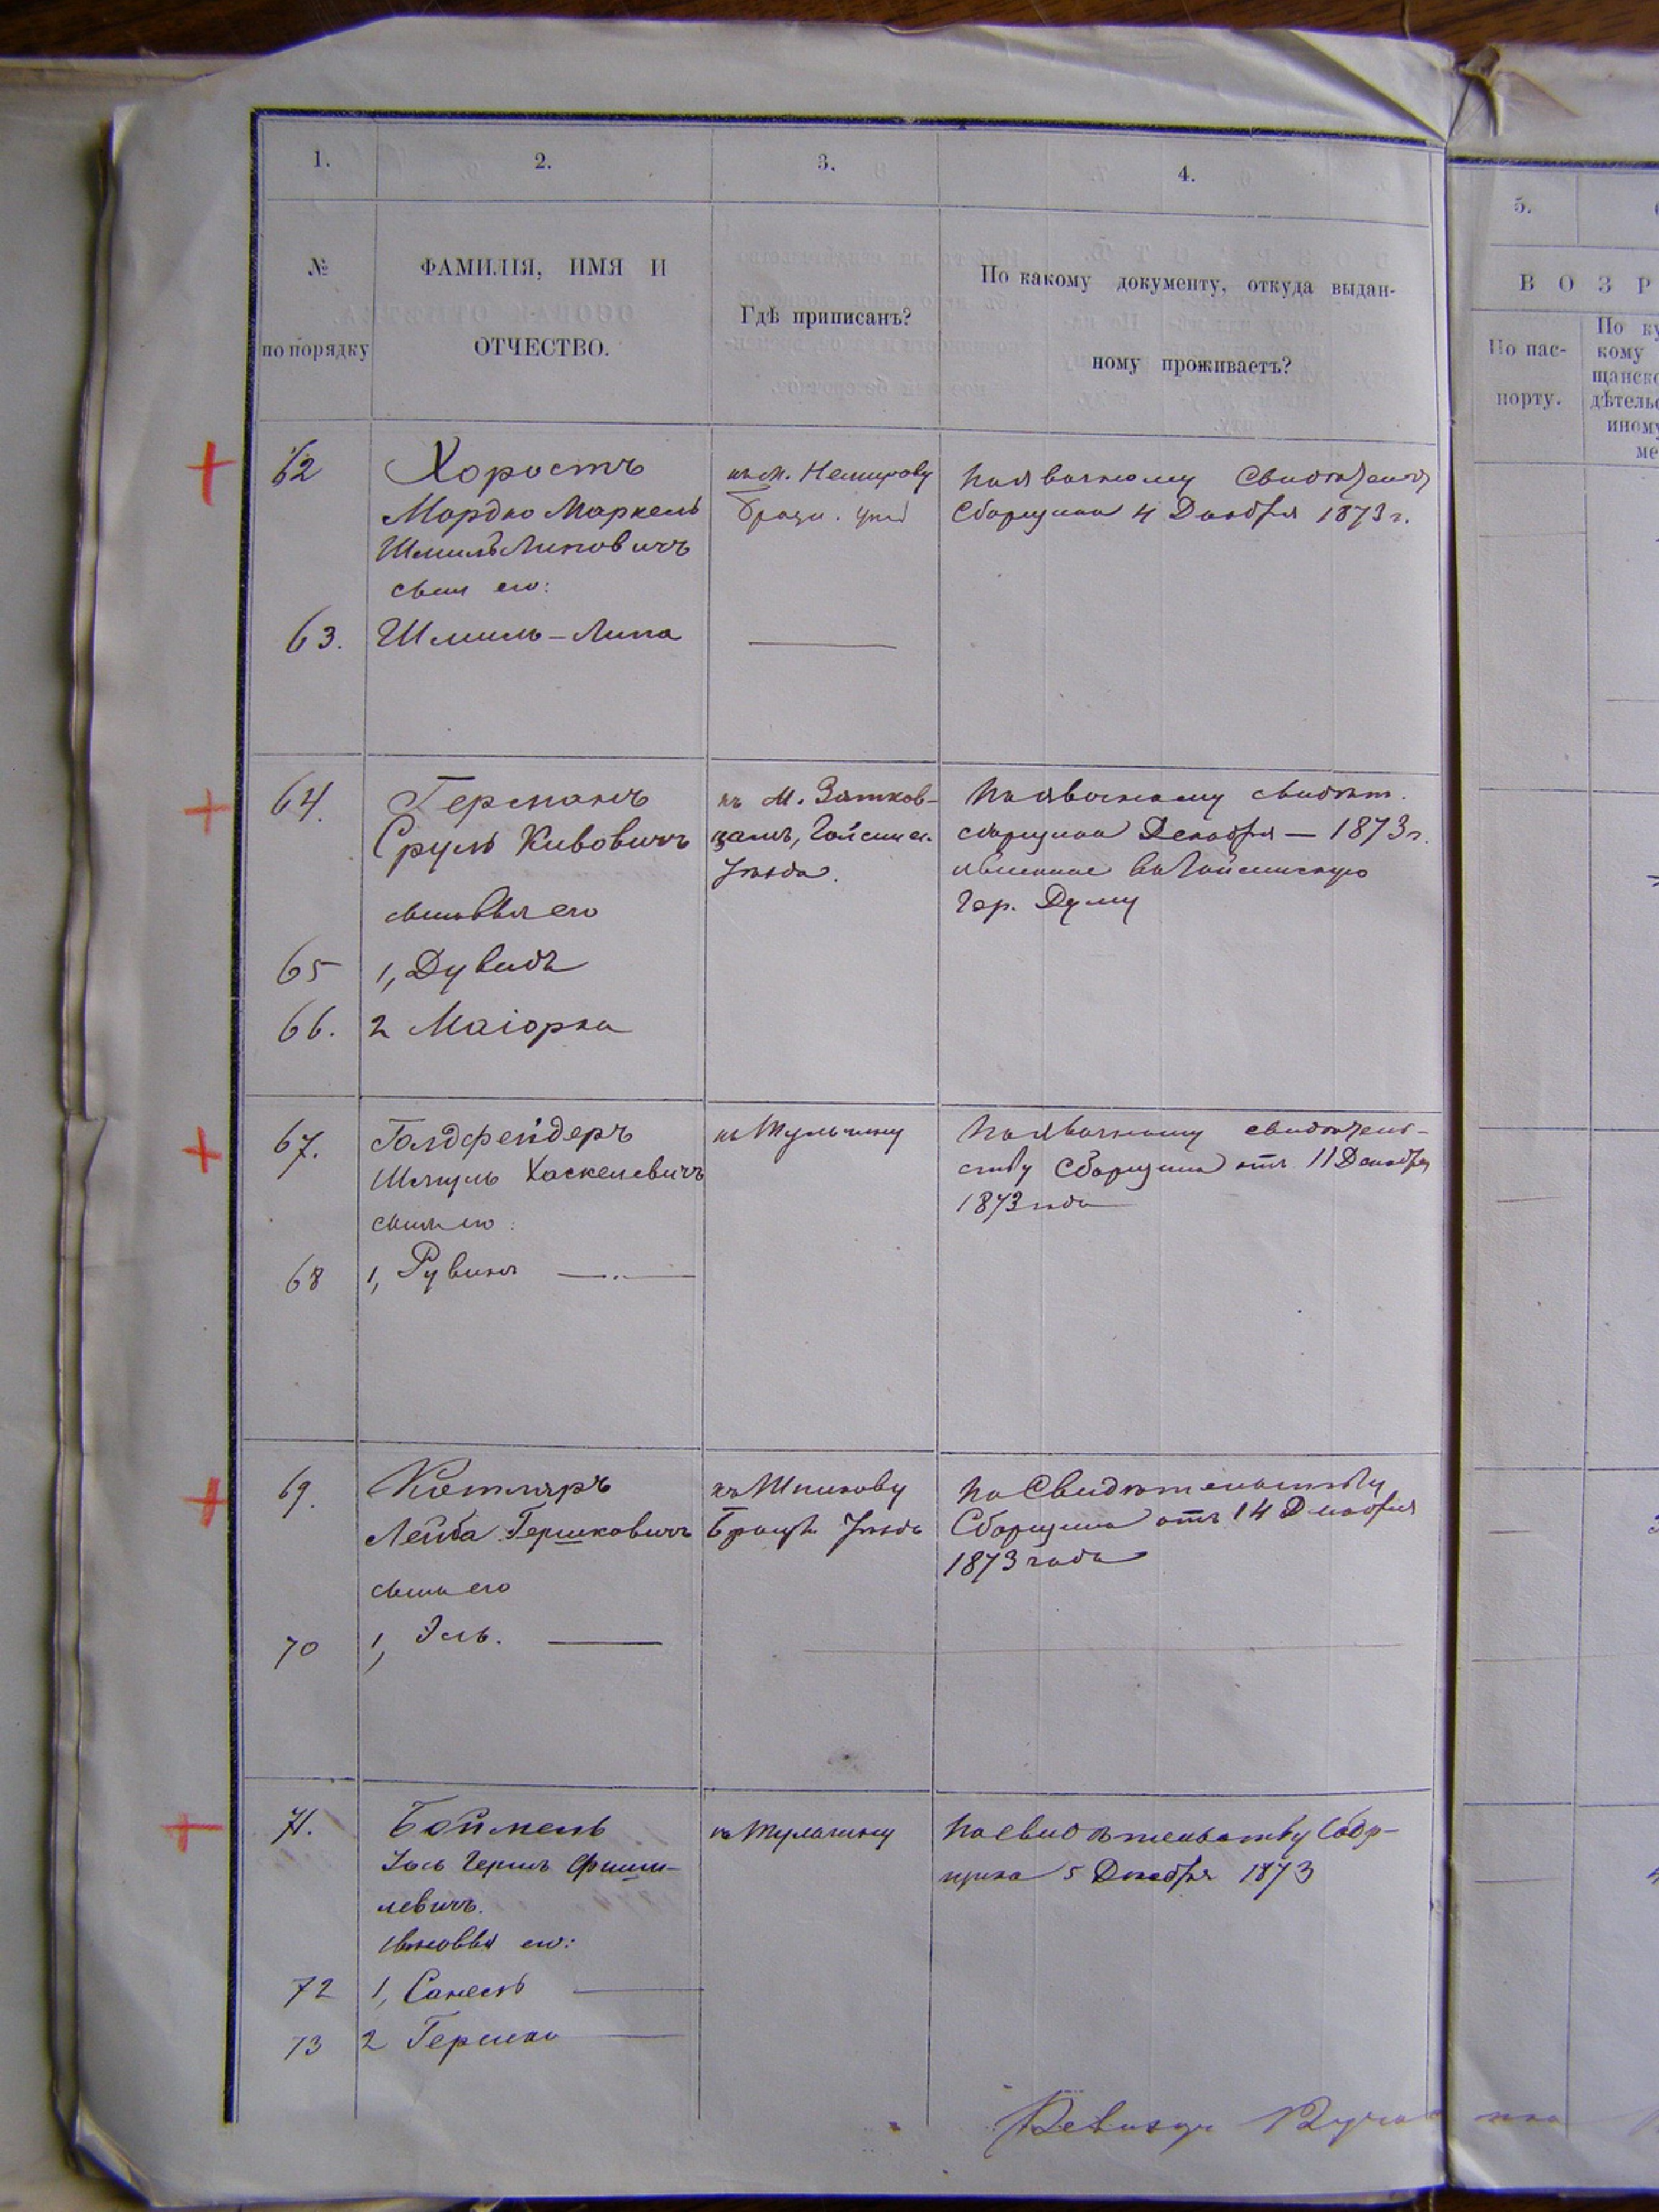 1.
2.
3.
4.
5.
№
по порядку
ФАМИЛІЯ, ИМЯ И
ОТЧЕСТВО.
Гдѣ приписанъ?
По какому документу, откуда выдан-
ному проживаетъ?
ВОЗР
По пас-
порту.
По ку
кому
щанско
дѣтельс
иному
ме
62
Хоростъ
Мордко Маркель
Шмиль Липовичъ
сынъ его:
къ м. Немирову
Брацл. уѣзд
По явочному свидѣтельст
Сборщика 4 Декабря 1873 г.
63.
Шмиль-Липа
64.
Германъ
Сруль Кивовичъ
сыновья его
къ М. Зятков-
цамъ, Гайсин.
Уѣзда.
По явочному свидѣт.
сборщика Декабря — 1873 г.
явленное въ Гайсинскую
Гор. Думу
65
1, Дувидъ
66.
2 Маіорка
67.
Голдфейдеръ
Шмуль Хаскелевичъ
сынъ его:
къ Тульчину
По явочному свидѣтель-
ству Сборщика отъ 11 Декабря
1873 года
68
1, Рувинъ
69.
Котляръ
Лейба Гершковичъ
сынъ его
къ Шпикову
Брацл. Уѣзда
По Свидѣтельству
Сборщика отъ 14 Декабря
1873 года
70
1, Эль.
71.
Боймель
Іось Герш Фиши-
левичъ.
сыновья его:
къ Тульчину
По свидѣтельству Сбор-
щика 5 Декабря 1873
72
1, Санель
73
2 Гершко